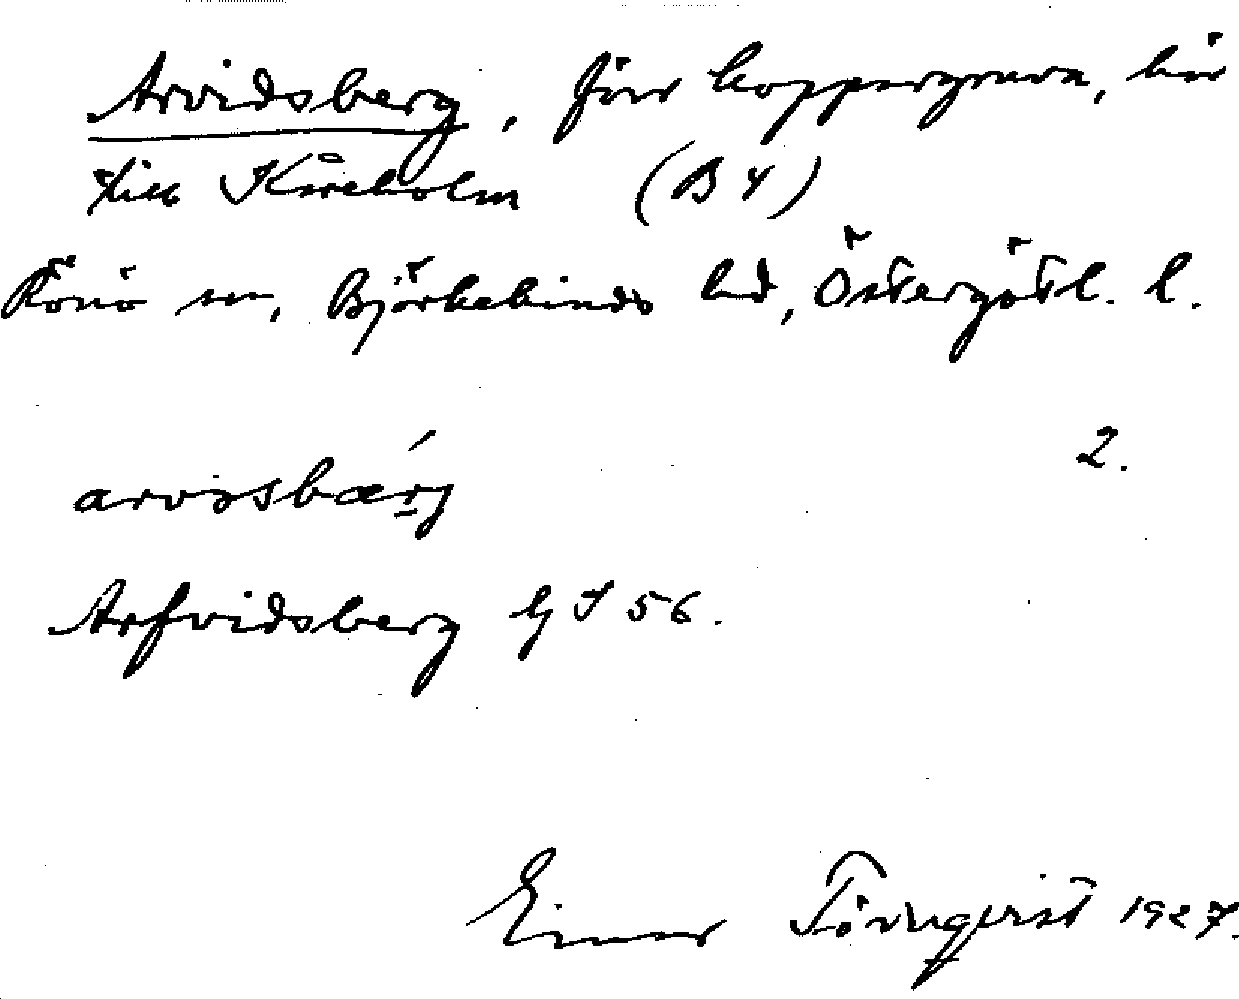 Arvidsberg, förr koppargruva, hör
till Kåreholm (B 4)
Rönö sn, Björkekinds hd, Östergötl. l.
2.
arvidsbærj
Arfvidsberg GS 56.
Einar Törnqvist 1927.